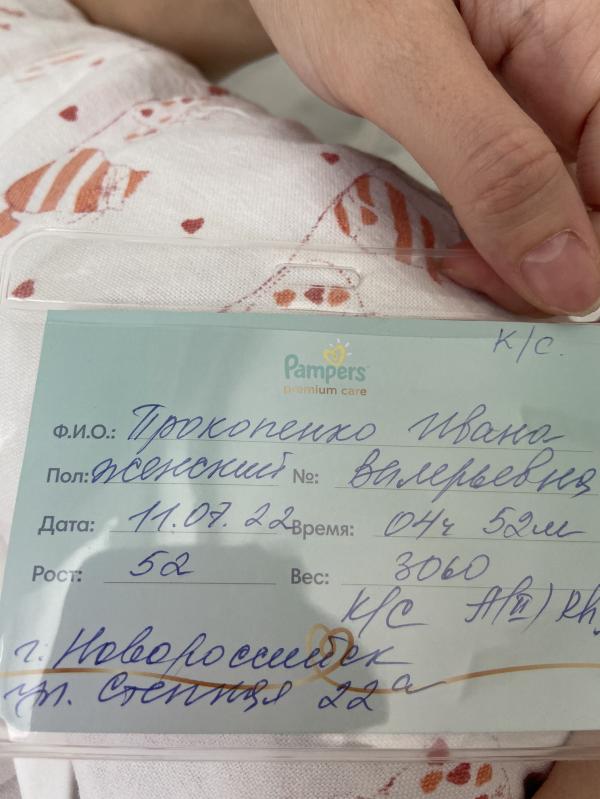 К/С.
Pampers
premium care
Ф.И.О.: Прокопенко Ивана
Пол: женский №: Валерьевна
Дата: 11.07.22 Время: 04ч 52м
Рост: 52 Вес: 3060
К/С А(II) Rh
г. Новороссийск
ул. Степная 22а